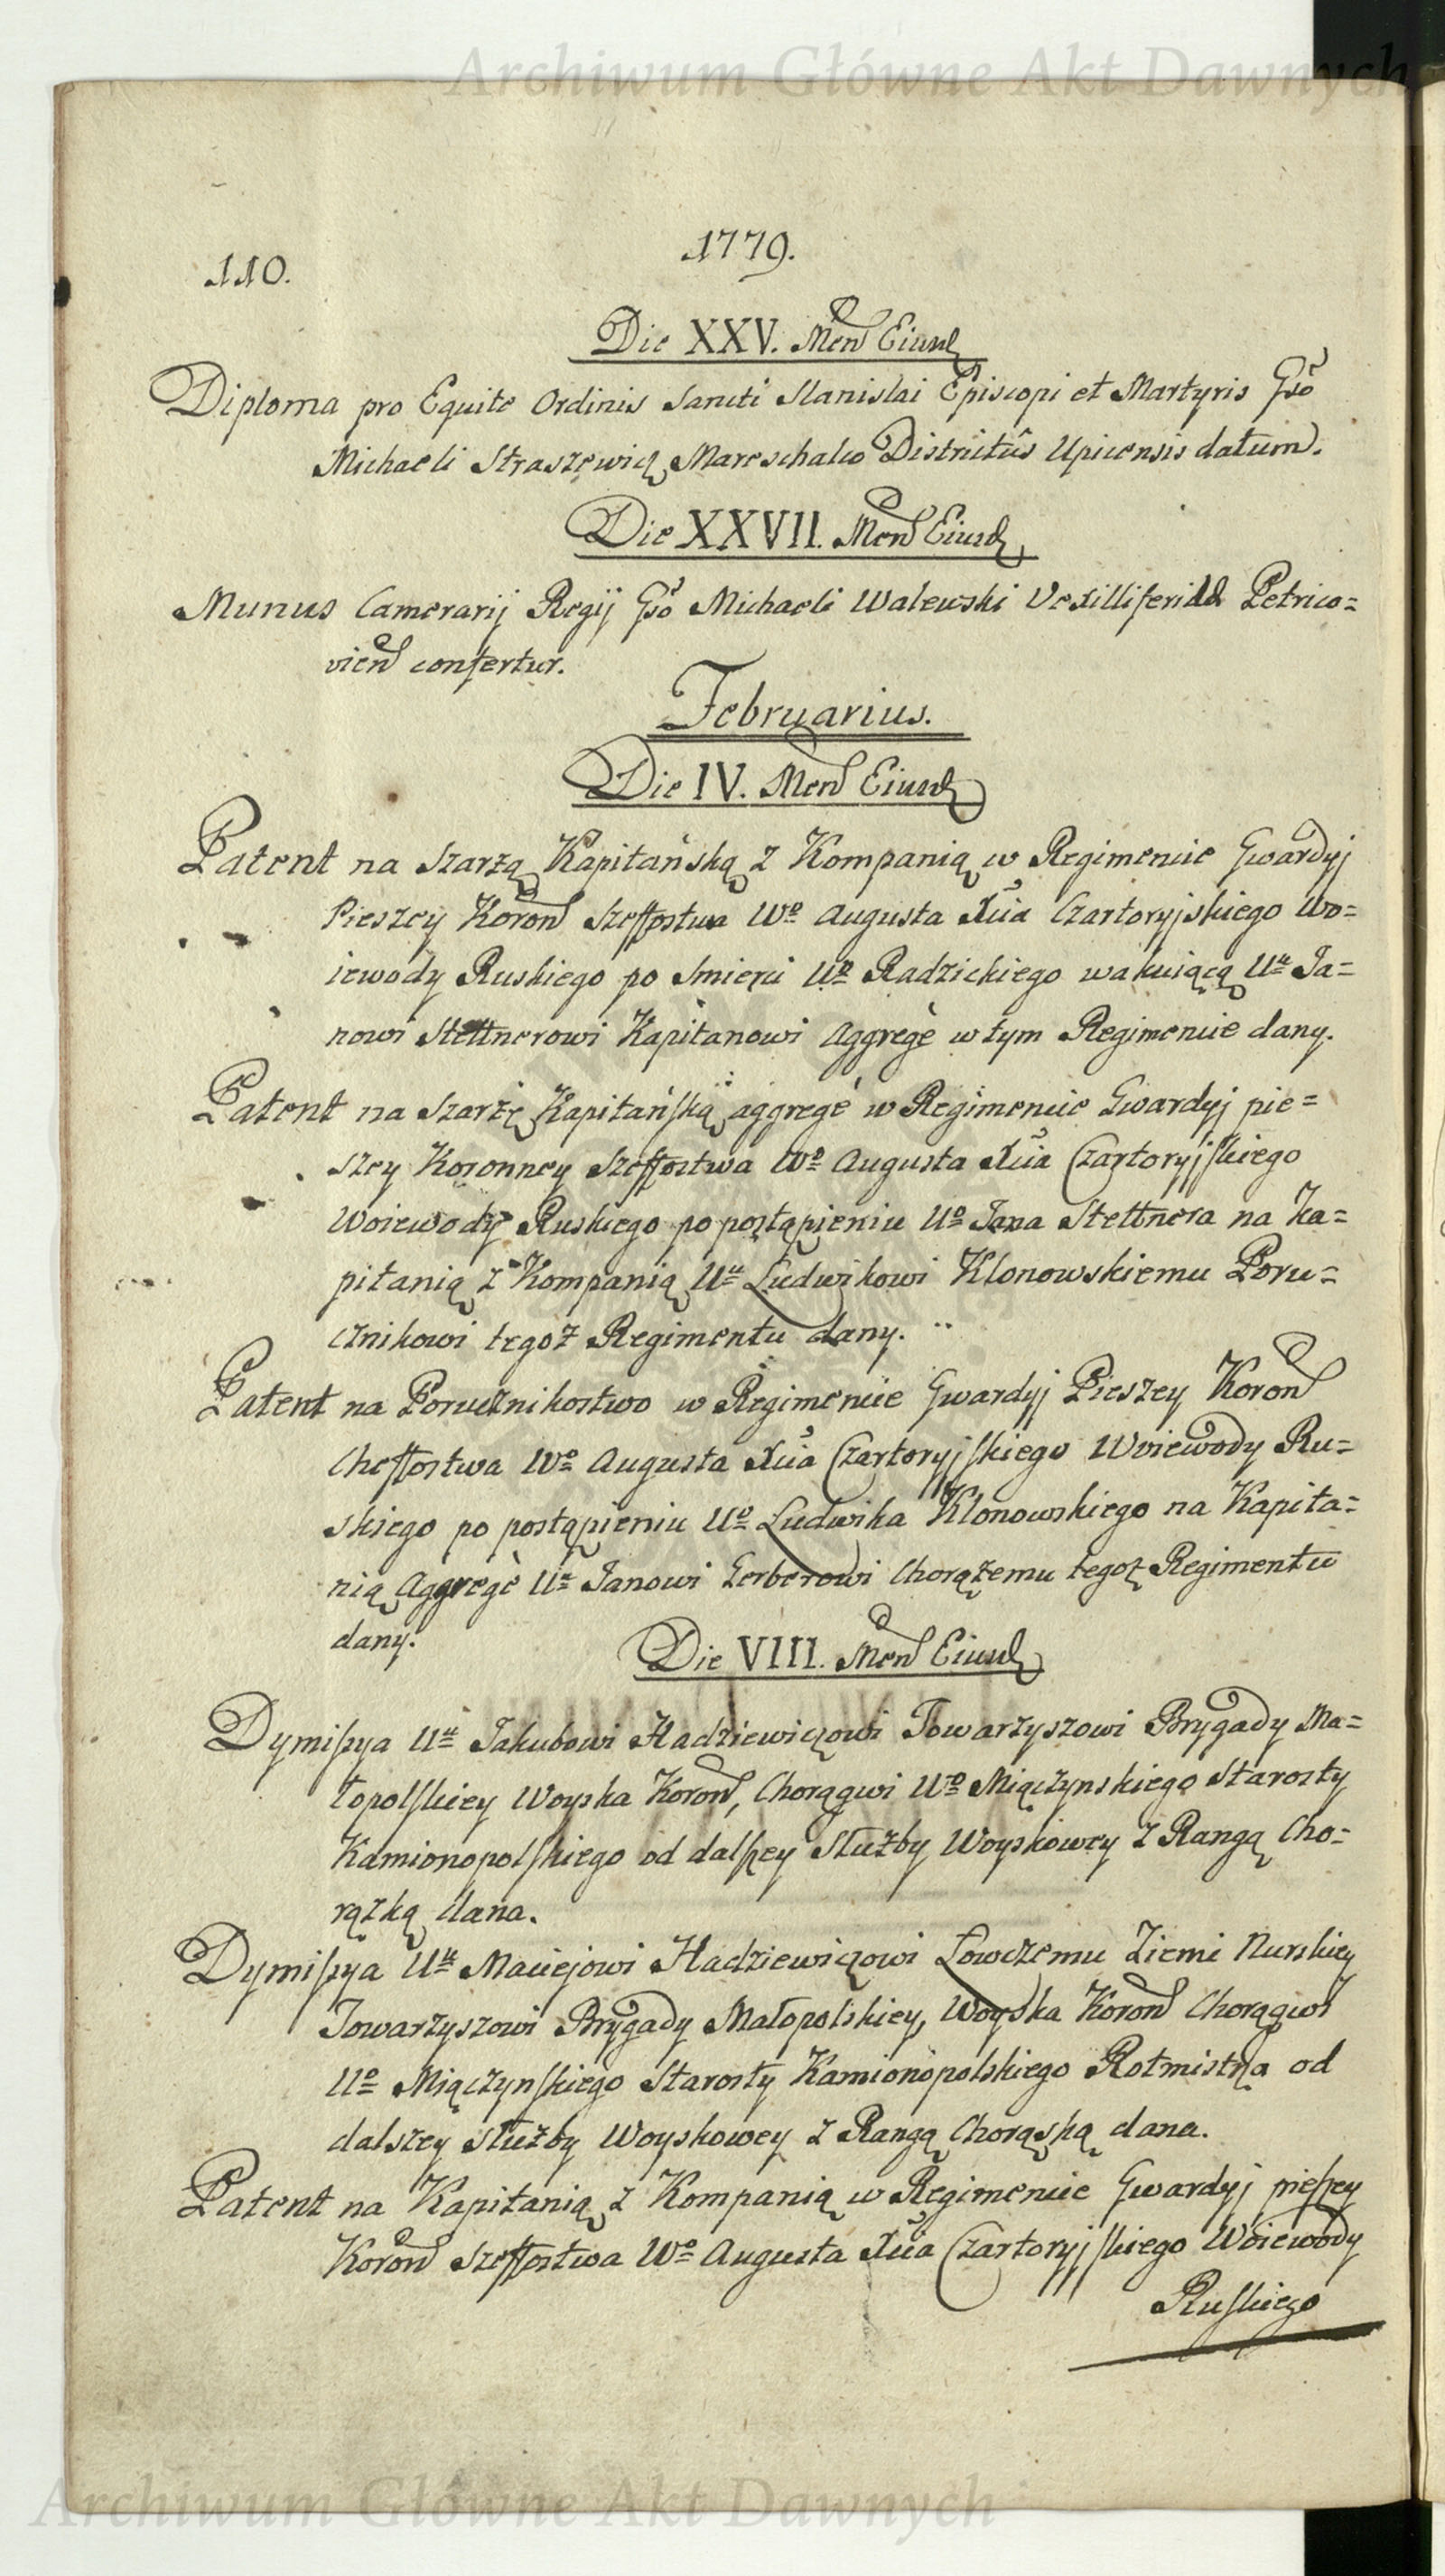 Archiwum Główne Akt Dawnych
1779.
110.
Die XXV. Men Eiusd
Diploma pro Equite Ordinis Sancti Stanislai Episcopi et Martyris Gso
Michaeli Straszewicz Mareschalco Districtûs Upicensis datum.
Die XXVII. Men Eiusd
Munus Camerarij Regij Gso Michaeli Walewski Vexilliferidae Petrico=
vien confertur.
Februarius.
Die IV. Men Eiusd
Patent na Szarżą Kapitańską z Kompanią w Regimencie Gwardyj
Pieszey Koron Szeffostwa Wo Augusta Xcia Czartoryjskiego Wo=
iewody Ruskiego po Smierci Uo Radzickiego wakuiącą Uu Ja=
nowi Stettnerowi Kapitanowi Aggregè w tym Regimencie dany.
Patent na Szarżę Kapitańską aggregé w Regimencie Gwardyj pie=
szey Koronney Szeffostwa Wo Augusta Xcia Czartoryjskiego
Woiewody Ruskiego po postąpieniu Uo Jana Stettnera na Ka=
pitanią z Kompanią Uu Ludwikowi Klonowskiemu Poru=
cznikowi tegoż Regimentu dany.
Patent na Porucznikostwo w Regimencie Gwardyj Pieszey Koron
Cheffostwa Wo Augusta Xcia Czartoryjskiego Woiewody Ru=
skiego po postąpieniu Uo Ludwika Klonowskiego na Kapita=
nią Aggregè Uu Janowi Gerberowi Chorążemu tegoż Regimentu
dany.
Die VIII. Men Eiusd
Dymissya Uu Jakubowi Hadziewiczowi Towarzyszowi Brygady Ma=
łopolskiey Woyska Koron, Chorągwi Uo Miączynskiego Starosty
Kamionopolskiego od dalszey Służby Woyskowey z Rangą Cho=
rązką dana.
Dymissya Uu Maciejowi Hadziewiczowi Łowczemu Ziemi Nurskiey
Towarzyszowi Brygady Małopolskiey, Woyska Koron Chorągwi
Uo Miączynskiego Starosty Kamionopolskiego Rotmistrza od
dalszey służby Woyskowey z Rangą Chorąską dana.
Patent na Kapitanią z Kompanią w Regimencie Gwardyj pieszey
Koron Szeffostwa Wo Augusta Xcia Czartoryjskiego Woiewody
Ruskiego
Archiwum Główne Akt Dawnych